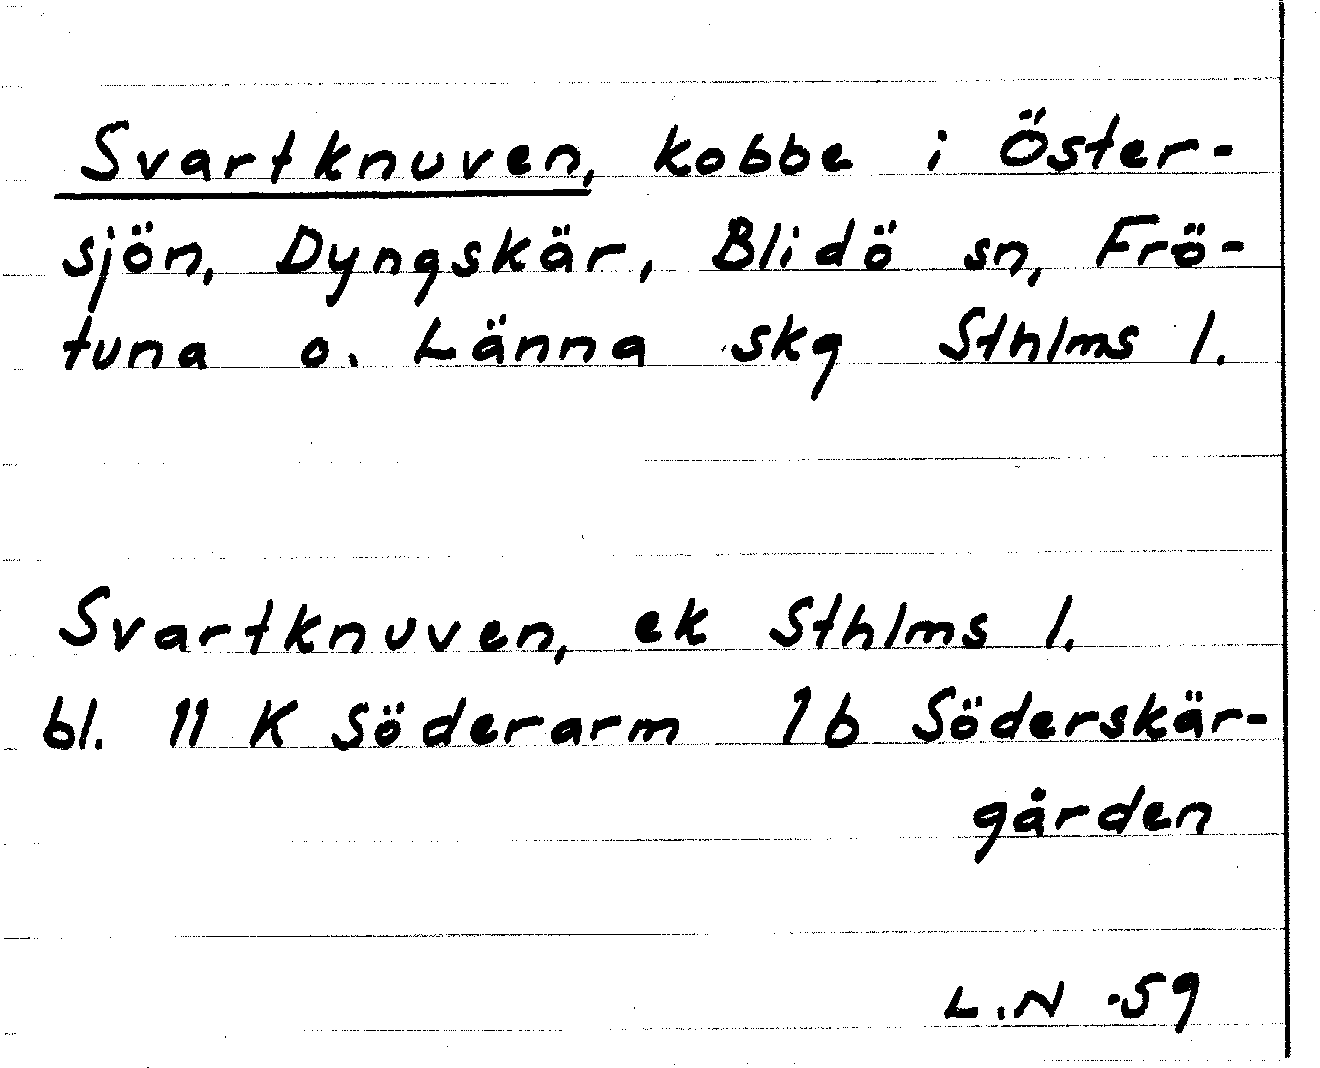 Svartknuven, kobbe i Öster-
sjön, Dyngskär, Blidö sn, Frö-
tuna o. Länna skg Sthlms l.
Svartknuven, ek Sthlms l.
bl. 11 K Söderarm 1b Söderskär-
gården
L.N -59